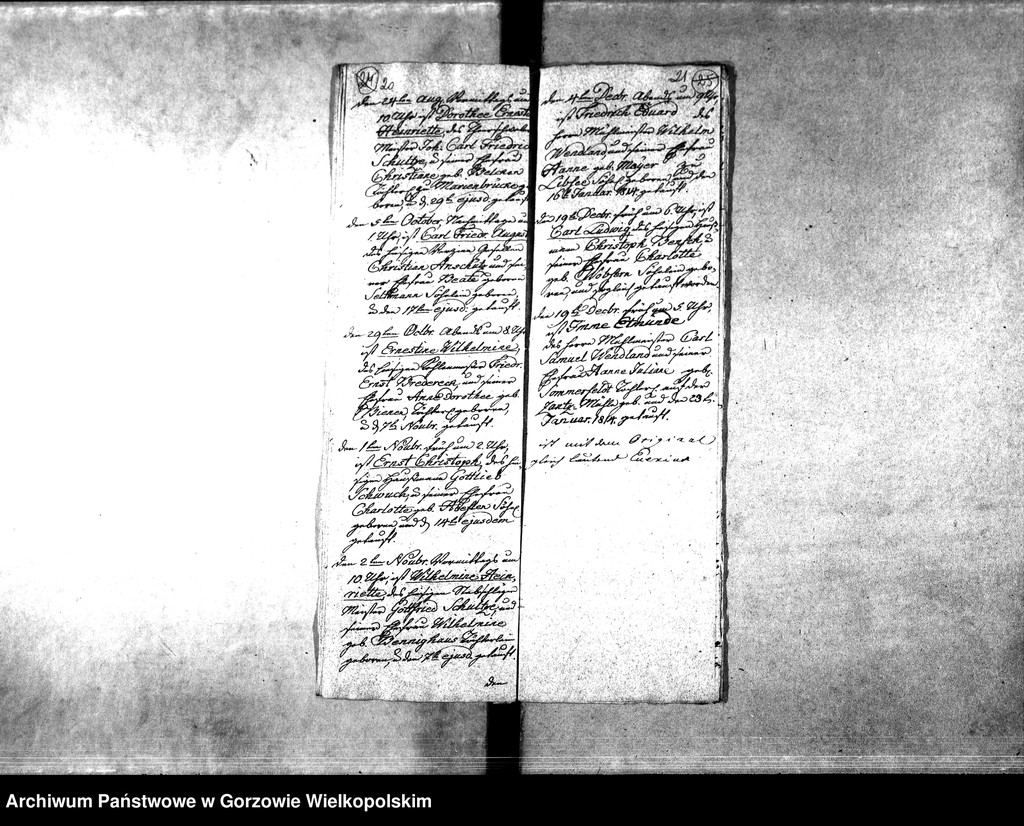 24 20
den 24ten Aug. Vormittags um
10 Uhr, ist Dorothee Ernest
Henriette, des
Meister Joh. Carl Friedric
Schultze, u seiner Ehefrau
Christiane geb. Belcken
Töchterl. zu Marienbrück ge
boren, u d. 29ten ejusd. getauft
den 5ten October Nachmittags um
1 Uhr, ist Carl Friedr. August
des hiesigen
Christian Anschütz und sei
ner Ehefrau Beate geborne
Seltmann Söhnlein geboren,
u den 17ten ejusd. getauft.
den 29ten Octbr. Abends um 8 Uhr
ist Ernestine Wilhelmine,
des hiesigen Friedr.
Ernst Bredereck, und seiner
Ehefrau Anne Dorothee geb.
Bieren, Töchterl. geboren,
u d. 7ten Novbr. getauft.
den 1ten Novbr. früh um 2 Uhr,
ist Ernst Christoph, des hie
sigen Hausmann Gottlieb
Schwuch, u seiner Ehefrau
Charlotte geb. Söhnl.
geboren, und d. 14ten ejusdem
getauft.
den 2ten Novbr. Vormittags um
10 Uhr, ist Wilhelmine Hein
riette, des hiesigen Stabschläger
Meister Gottfried Schultze, und
seiner Ehefrau Wilhelmine
geb. Bennighaus Töchterlein
geboren, u den 7ten ejusd. getauft.
den
21 25
den 4ten Decbr. Abends um 9 Uhr
ist Friedrich Eduard des
Herrn Mühlmeister Wilhelm
Wendland und seiner Ehefrau
Hanne geb. Mayer zu
Libsee Söhnl. geboren, und den
16ten Januar. 1814. getauft.
den 19ten Decbr. früh um 6 Uhr, ist
Carl Ludwig des hiesigen Haus
mann Christoph Bensch, u
seiner Ehefrau Charlotte
geb. Söhnlein gebo
ren, und zugleich getauft worden.
den 19ten Decbr. früh um 5 Uhr,
ist Emme Etmunde
des Herrn Mühlmeister Carl
Samuel Wendland und seiner
Ehefrau Hanne Juliane geb.
Sommerfeldt Töchterl. auf der
Zantz. Mühle geb. und den 23ten
Januar. 1814. getauft.
ist mit dem Original
gleich lautend
Archiwum Państwowe w Gorzowie Wielkopolskim